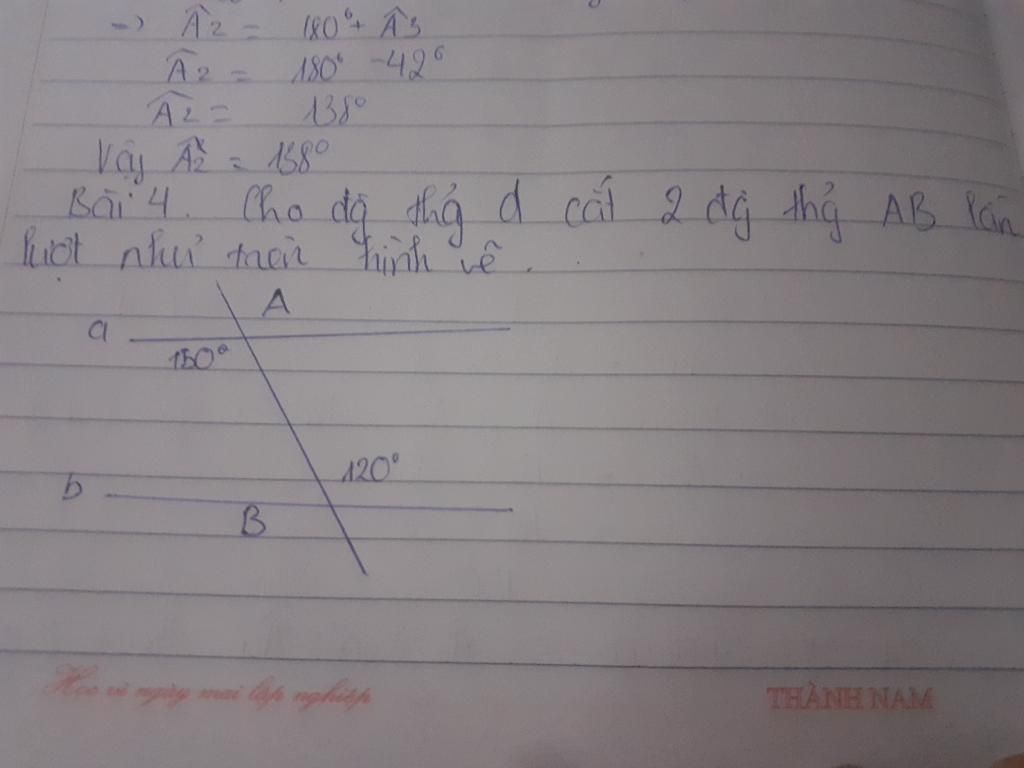 => Â2 = 180° + Â3
Â2 = 180° - 42°
Â2 = 138°
Vậy Â2 = 138°
Bài 4. Cho đg thẳg d cắt 2 đg thẳg AB lần
lượt như trên hình vẽ.
A
a
150°
120°
b
B
Học vì ngày mai lập nghiệp
THÀNH NAM